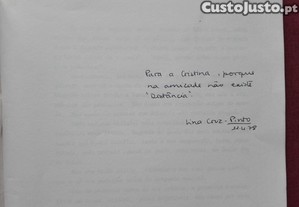 CustoJusto.pt
Para a Cristina, porque
na amizade não existe
"distância"
Lina Cruz-Pinto
11.4.78